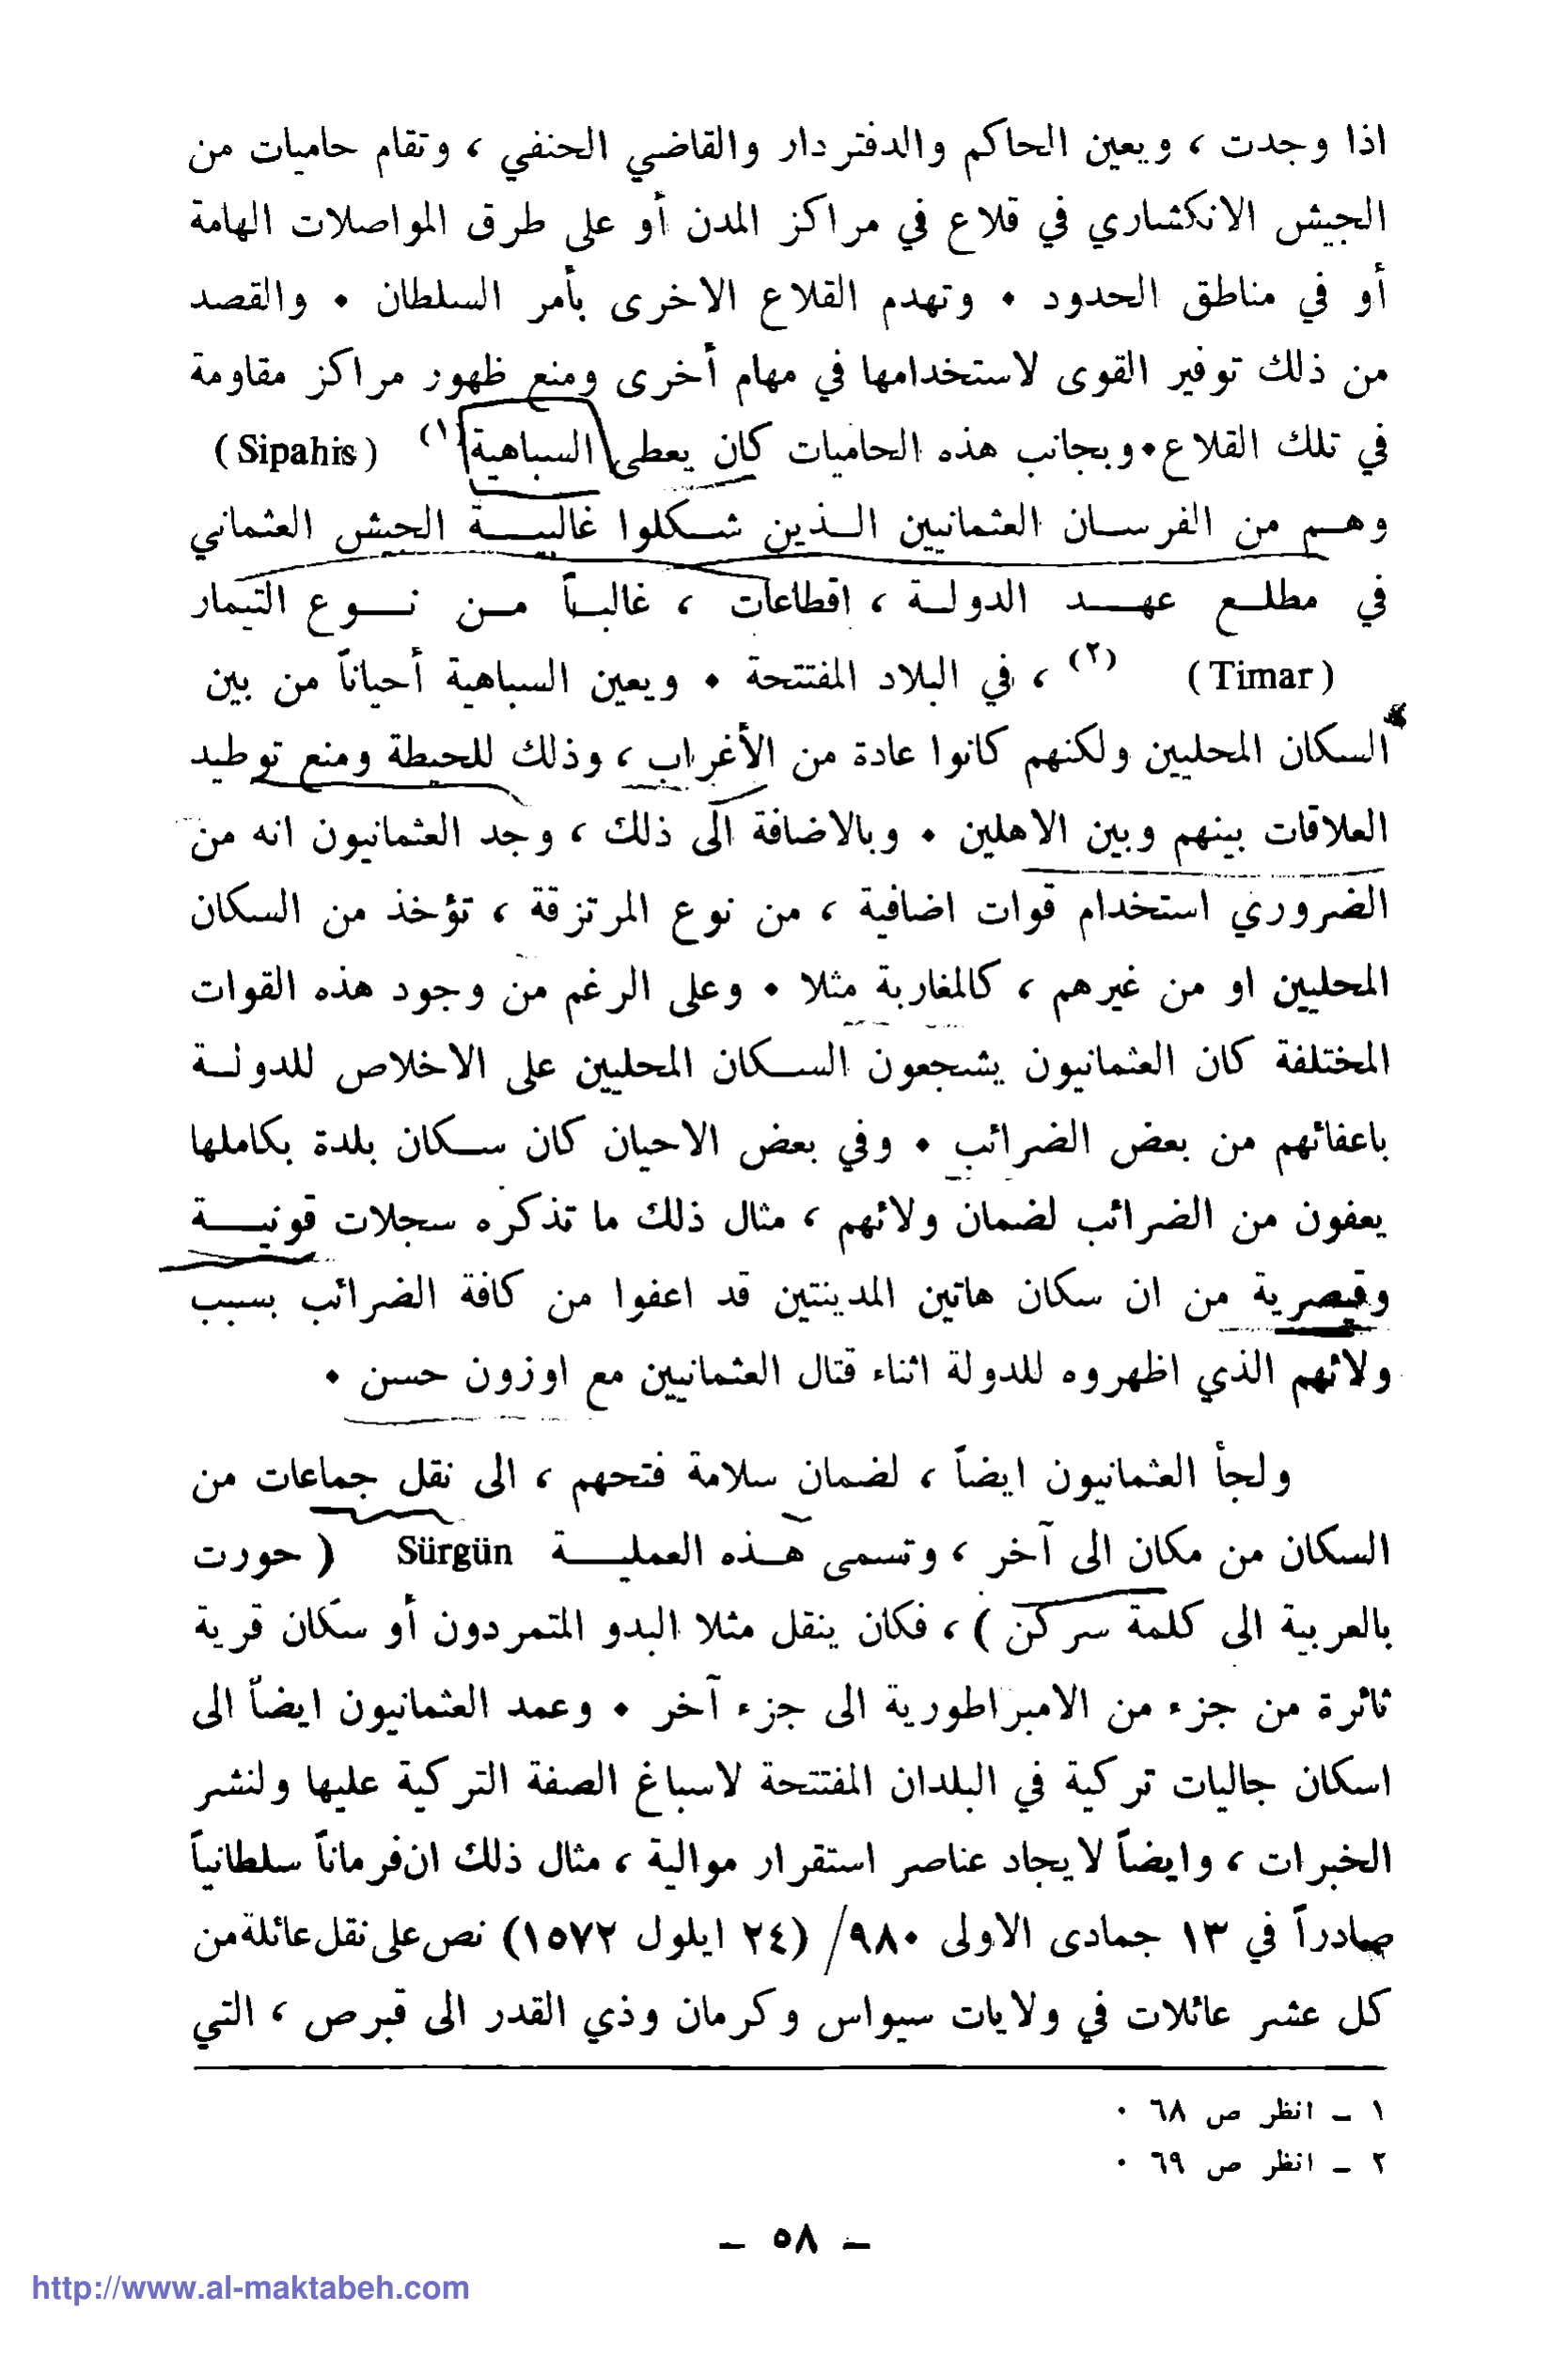 اذا وجدت ، ويعين الحاكم والدفتردار والقاضي الحنفي ، وتقام حاميات من
الجيش الانكشاري في قلاع في مراكز المدن أو على طرق المواصلات الهامة
أو في مناطق الحدود • وتهدم القلاع الاخرى بأمر السلطان • والقصد
من ذلك توفير القوى لاستخدامها في مهام أخرى ومنع ظهور مراكز مقاومة
في تلك القلاع•وبجانب هذه الحاميات كان يعطى السباهية (١) (Sipahis)
وهم من الفرسان العثمانيين الذين شكلوا غالبية الجيش العثماني
في مطلع عهد الدولة ، اقطاعات ، غالباً من نوع التيمار
(Timar) (٢) ، في البلاد المفتتحة • ويعين السباهية أحياناً من بين
السكان المحليين ولكنهم كانوا عادة من الأغراب ، وذلك للحيطة ومنع توطيد
العلاقات بينهم وبين الاهلين • وبالاضافة الى ذلك ، وجد العثمانيون انه من
الضروري استخدام قوات اضافية ، من نوع المرتزقة ، تؤخذ من السكان
المحليين او من غيرهم ، كالمغاربة مثلا • وعلى الرغم من وجود هذه القوات
المختلفة كان العثمانيون يشجعون السكان المحليين على الاخلاص للدولة
باعفائهم من بعض الضرائب • وفي بعض الاحيان كان سكان بلدة بكاملها
يعفون من الضرائب لضمان ولائهم ، مثال ذلك ما تذكره سجلات قونية
وقيصرية من ان سكان هاتين المدينتين قد اعفوا من كافة الضرائب بسبب
ولائهم الذي اظهروه للدولة اثناء قتال العثمانيين مع اوزون حسن •
ولجأ العثمانيون ايضاً ، لضمان سلامة فتحهم ، الى نقل جماعات من
السكان من مكان الى آخر ، وتسمى هذه العملية Sürgün ( حورت
بالعربية الى كلمة سركن ) ، فكان ينقل مثلا البدو المتمردون أو سكان قرية
ثائرة من جزء من الامبراطورية الى جزء آخر • وعمد العثمانيون ايضاً الى
اسكان جاليات تركية في البلدان المفتتحة لاسباغ الصفة التركية عليها ولنشر
الخبرات ، وايضاً لايجاد عناصر استقرار موالية ، مثال ذلك ان فرماناً سلطانياً
صادراً في ١٣ جمادى الاولى ٩٨٠/ (٢٤ ايلول ١٥٧٢) نص على نقل عائلة من
كل عشر عائلات في ولايات سيواس وكرمان وذي القدر الى قبرص ، التي
١ ــ انظر ص ٦٨ •
٢ ــ انظر ص ٦٩ •
ــ ٥٨ ــ
http://www.al-maktabeh.com